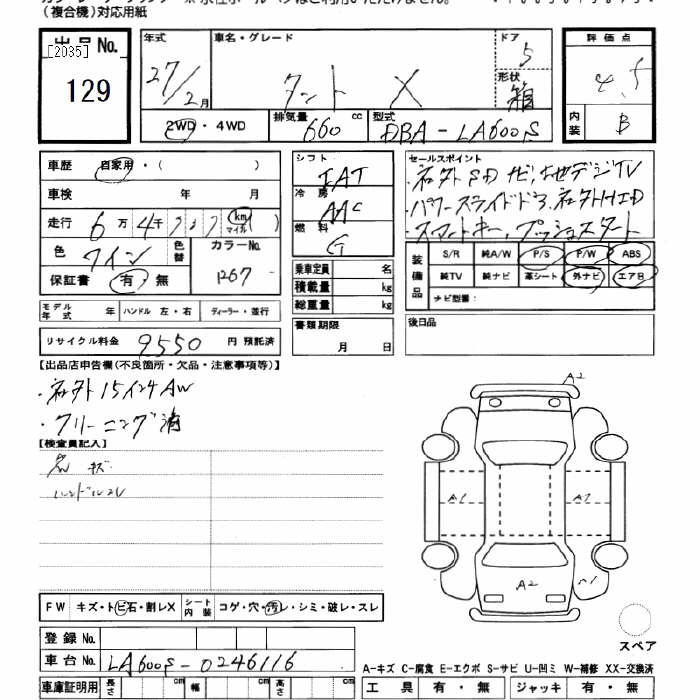 (複合機)対応用紙
出品No. [2035] 129
年式 27/2月
車名・グレード タント X
ドア 5
形状 箱
評価点 4.5
内装 B
2WD・4WD
排気量 660 cc
型式 DBA-LA600S
車歴 自家用・( )
車検 年 月
走行 6万4千 km マイル ( )
色 ワイン 色替 カラーNo. R67
保証書 有・無
モデル年式 年 ハンドル 左・右 ディーラー・並行
リサイクル料金 9550 円 預託済
シフト IAT
冷房 AAC
燃料 G
乗車定員 名
積載量 kg
総重量 kg
書類期限 月 日
セールスポイント
・社外SDナビ,地デジTV
・パワースライドドア,社外HID
・スマートキー,プッシュスタート
装備品 S/R 純A/W P/S P/W ABS
純TV 純ナビ 革シート 外ナビ エアB
ナビ型番:
後日品
【出品店申告欄(不良箇所・欠品・注意事項等)】
・社外15インチAW
・クリーニング済
【検査員記入】
キズ
ハンドルスレ
A2
A1 A1
A2
スペア
FW キズ・トビ石・割レX シート内装 コゲ・穴・汚レ・シミ・破レ・スレ
登録No.
車台No. LA600S-0246116
A-キズ C-腐食 E-エクボ S-サビ U-凹ミ W-補修 XX-交換済
車庫証明用 長さ cm 幅 cm 高さ cm
工具 有・無 ジャッキ 有・無